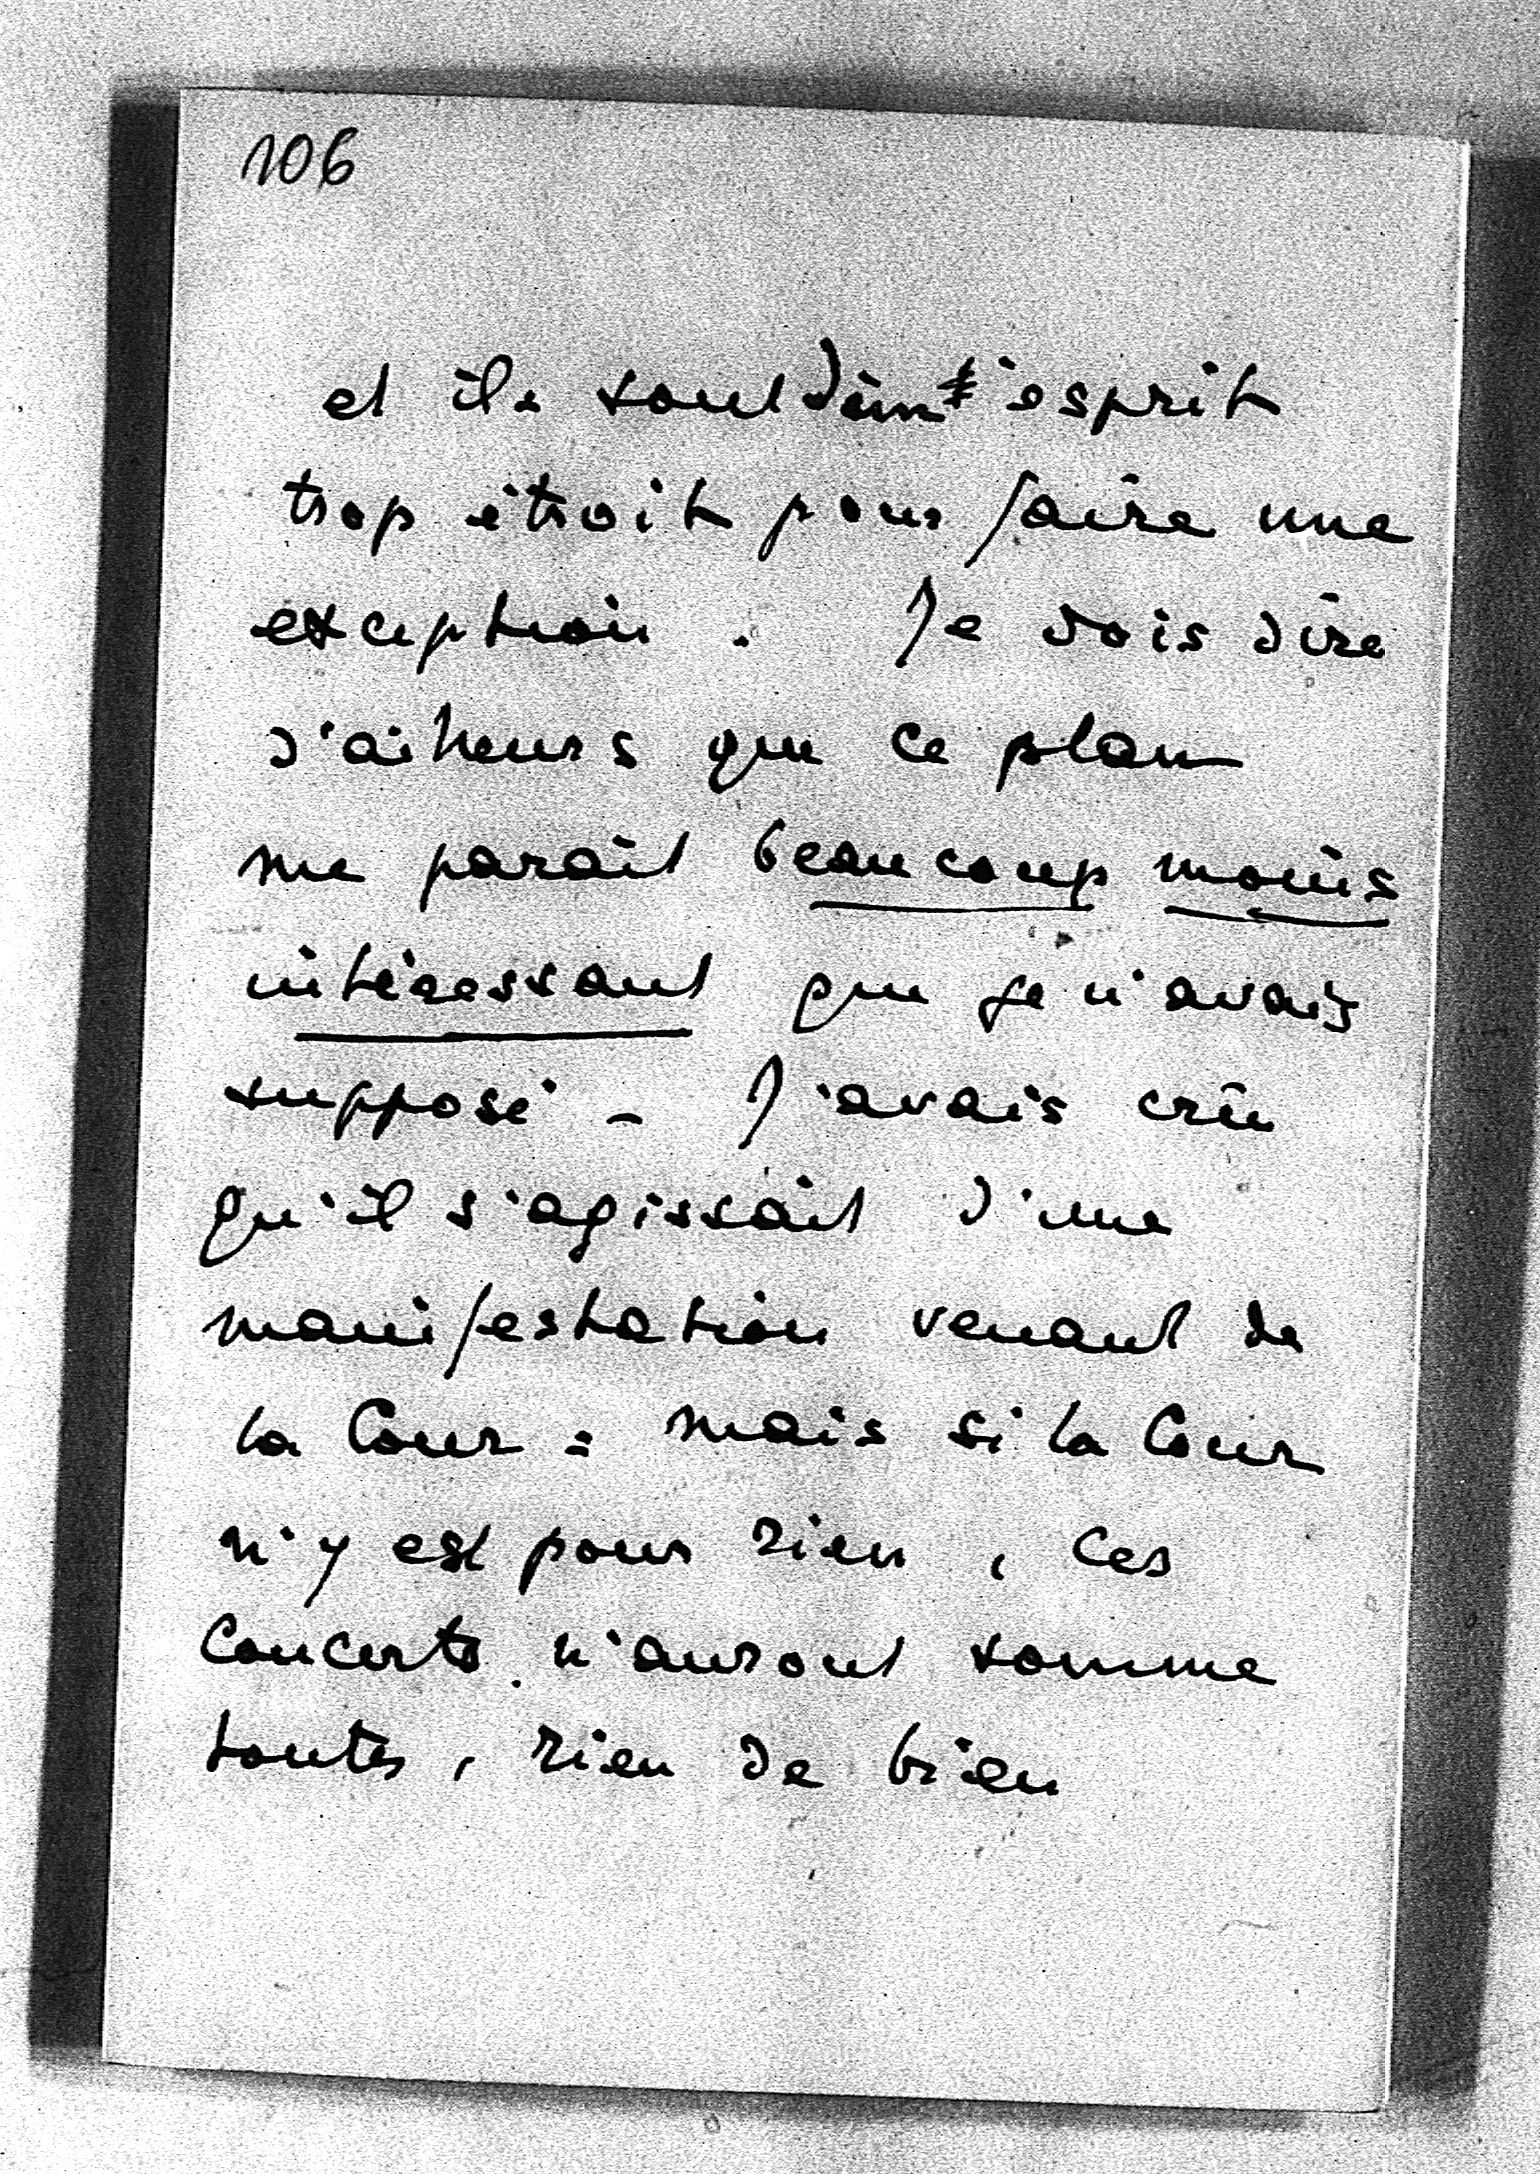 106
et ils sont d'un esprit
trop étroit pour faire une
exception. Je dois dire
d'ailleurs que ce plan
me paraît beaucoup moins
intéressant que je n'avais
supposé - J'avais crû
qu'il s'agissait d'une
manifestation venant de
la Cour : mais si la Cour
n'y est pour rien, ces
Concerts n'auront somme
toutes, rien de bien